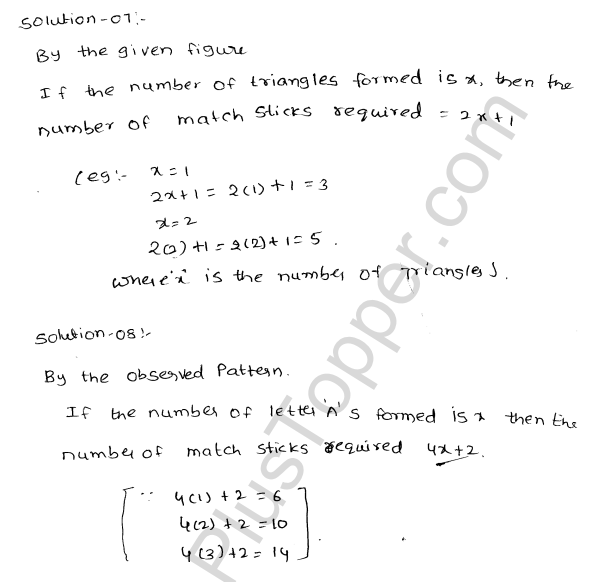 Solution-07:-
By the given figure
If the number of triangles formed is x, then the
number of match sticks required = 2x+1
(eg:- x=1
2x+1 = 2(1)+1=3
x=2
2(2)+1=2(2)+1=5.
where 'x' is the number of Triangles).
Solution-08:-
By the observed Pattern.
If the number of letter 'A's formed is x then the
number of match sticks required 4x+2.
[∵ 4(1)+2=6
4(2)+2=10
4(3)+2=14].
PlusTopper.com